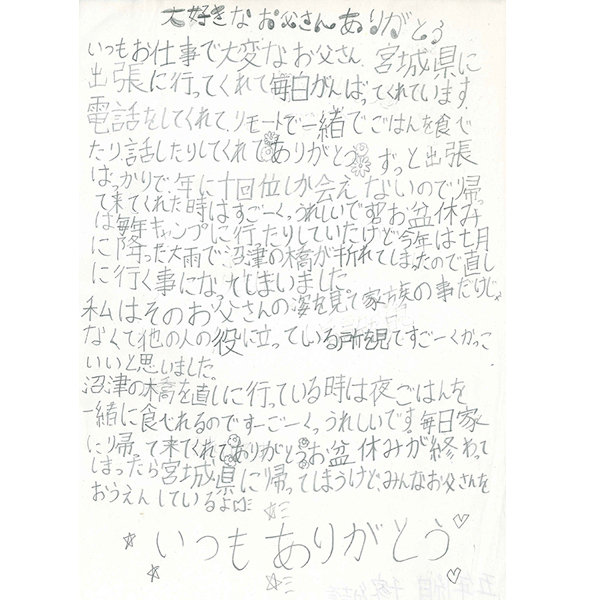 大好きなお父さんありがとう
いつもお仕事で大変なお父さん、宮城県に
出張に行ってくれて毎日がんばってくれています。
電話をしてくれて、リモートで一緒でごはんを食べ
たり、話したりしてくれてありがとう ずっと出張
ばっかりで、年に十回位しか会えないので帰っ
て来てくれた時はすごーくっうれしいです。お盆休み
は毎年キャンプに行ったりしていたけど今年は七月
に降った大雨で、沼津の橋が折れてしまったので直し
に行く事になってしまいました。
私はそのお父さんの姿を見て家族の事だけじゃ
なくて他の人の役に立っている所を見てすごーくかっこ
いいと思いました。
沼津の橋を直しに行っている時は夜ごはんを
一緒に食べれるのですーごーくっうれしいです。毎日家
に帰って来てくれてありがとう お盆休みが終わって
しまったら宮城県に帰ってしまうけど、みんなお父さんを
おうえんしているよ
いつもありがとう